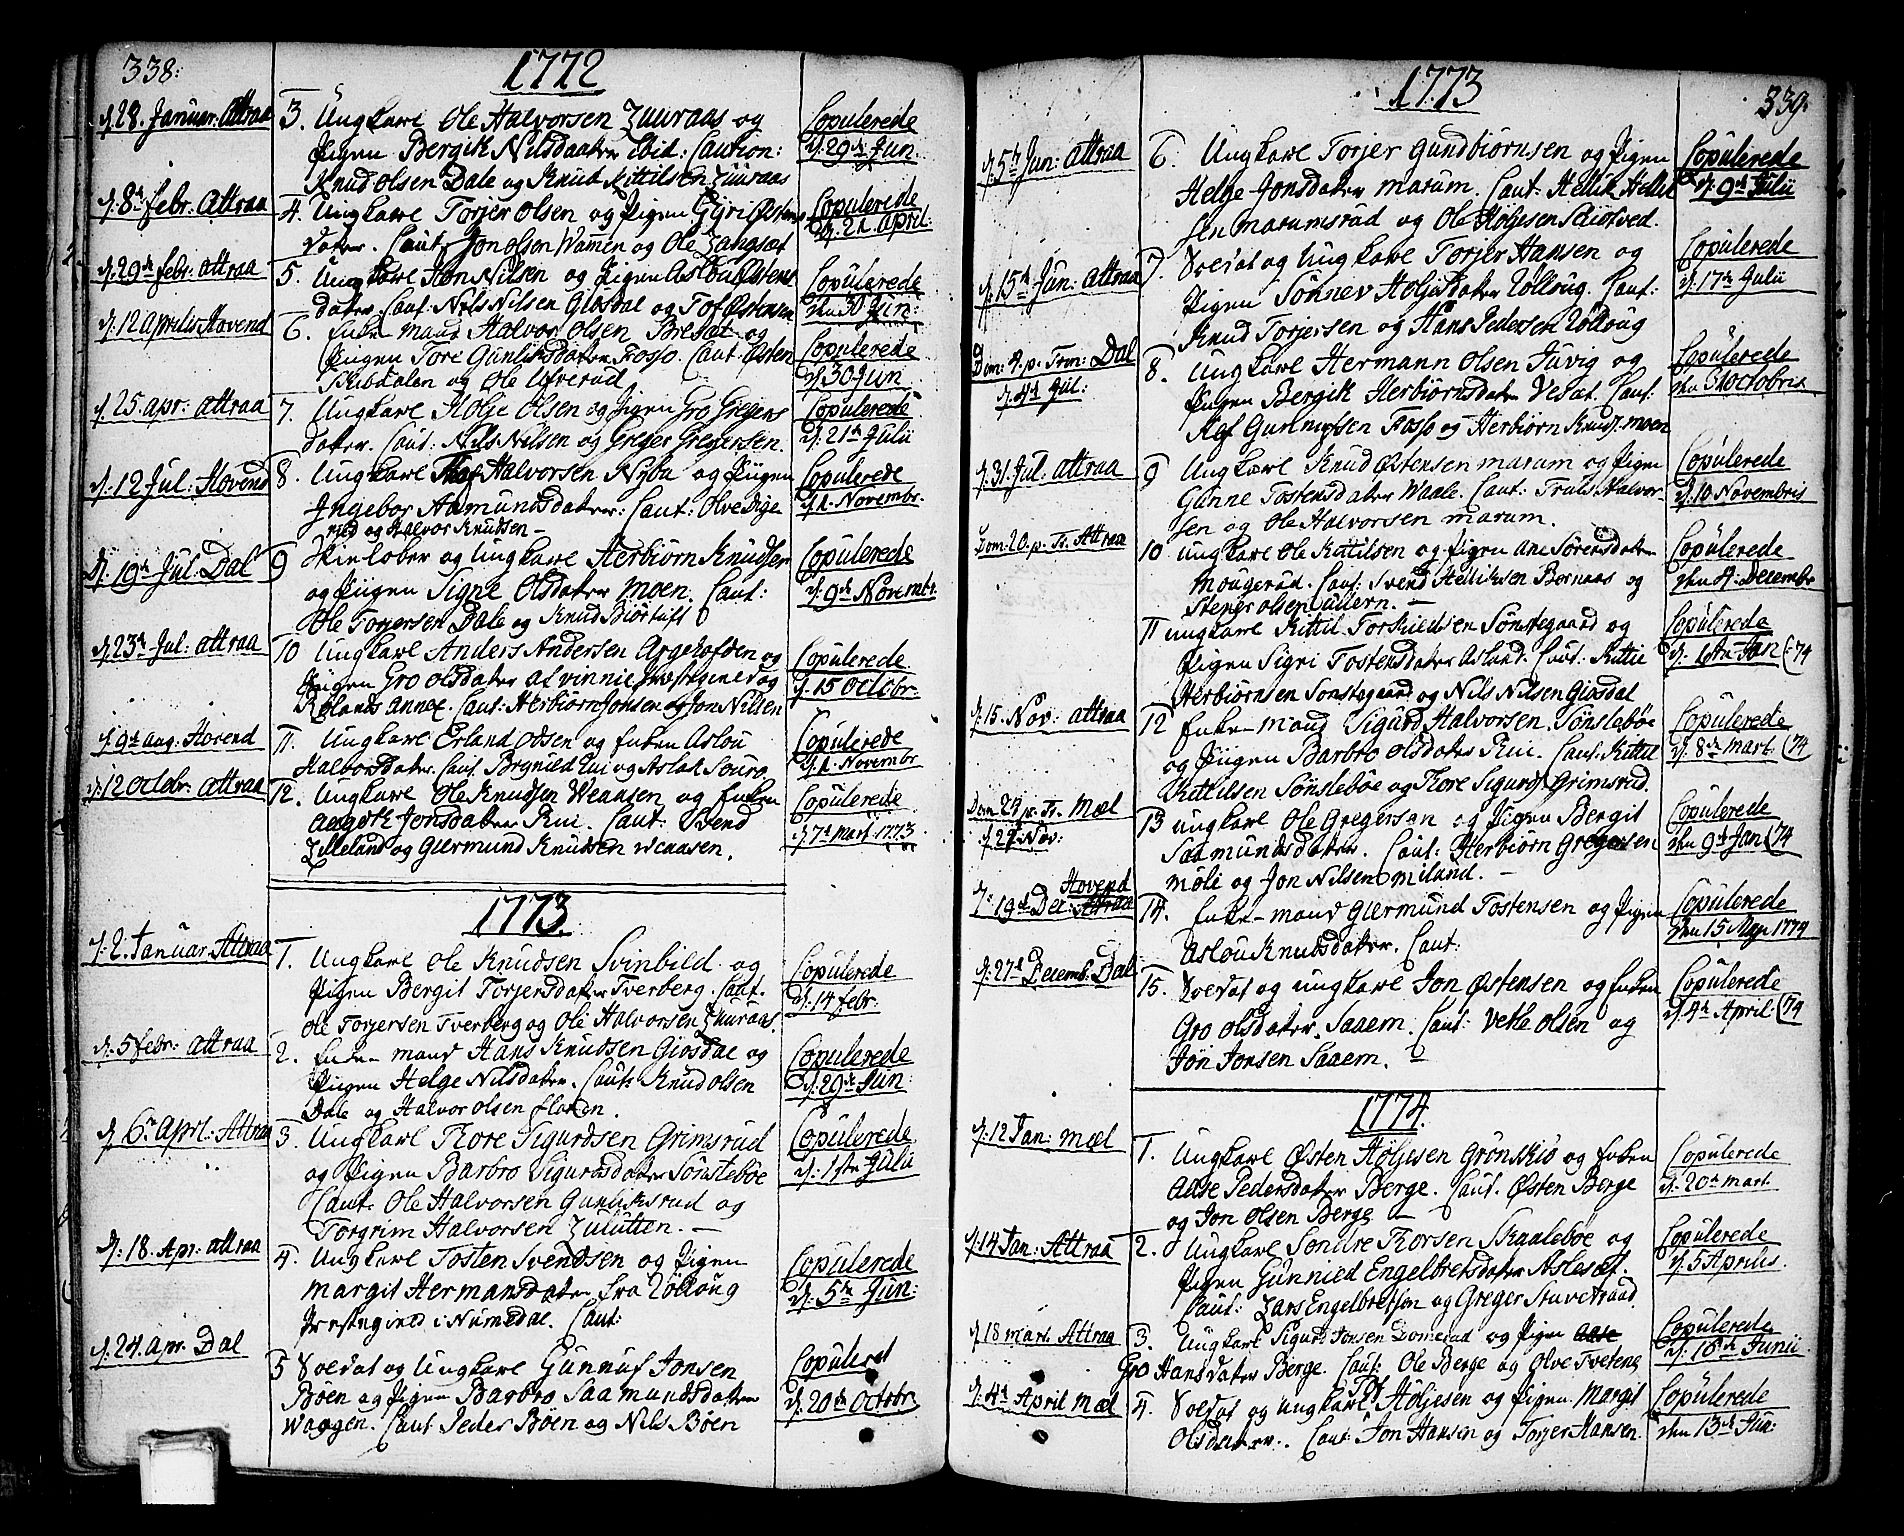 338:
1772
d. 28. Januar. Attraa
3. Ungkarl Ole Halvorsen Luuraas og
Pigen Bergit Nilsdaater ibid: Caution:
Knud Olsen Dale og Knud Kittilsen Luuraas
Copulerede
d. 29de Jun.
d. 8de febr: Attraa
4. Ungkarl Torjer Olsen og Pigen Gÿri Østens
dater. Caut: Jon Olsen Wamen og Ole
Copulerede
d. 21 April:
d. 29de febr: attraa
5. Ungkarl Jon Nilsen og Pigen Aslou Østens
dater. Caut: Nils Nilsen Giosdal og Tof Østensen
Copulerede
den 30 Jün:
d. 12 Aprilis Hovend
6. Enke-mand Halvor Olsen Bresat og
Pigen Tore Gunliksdater Fosso. Caut: Østen
Skibdalen og Ole Ufverud
Copulerede
d. 30 Jun
d. 25. apr: attraa
7. Ungkarl Holje Olsen og Pigen Gro Gregers
dater. Caut: Nils Nilsen og Greger Gregersen.
Copulerede
d. 21de Julii
d. 12 Jul: Hovend
8. Ungkarl Halvorsen Nÿbu og Pigen
Ingebor Aamundsdater: Caut: Olve Dige
rud og Halvor Knudsen -
Copulerede
d. 1. Novembr.
d. 19de Jul: Dal
9 Skieløber og Ungkarl Herbiørn Knudsen
og Pigen Signe Olsdater Moen. Caut:
Ole Torjersen Dale og Knud Biørtuft
Copulerede
d. 9de Novembr.
d. 23de Jul: attraa
10 Ungkarl Anders Andersen Argehofden og
Pigen Gro Olsdater af Vinnie Præstegield og
Rolands Annex. Caut: Herbiørn Jonsen og Jon Nilsen
Copulerede
d. 15 Octobr.
d. 9de aug: Hovend
11. Ungkarl Erland Olsen og Enken Aslou
Halvorsdater. Caut: Brynild Lui og Aslak Souro
Copulerede
d. 1. Novembr
d. 12 Octobr. attraa
12. Ungkarl Ole Knudsen Weaasen og Enken
Aagot Jonsdater Rui. Caut: Svend
Lilleland og Giermund Knudsen Weaasen.
Copulerede
d. 7de Mart: 1773
1773.
d. 2. Januar. Attraa
1. Ungkarl Ole Knudsen Svinbild og
Pigen Bergit Torjersdater Tverberg. Caut.
Ole Torjersen Tverberg og Ole Halvorsen Luuraas.
Copulerede
d. 14 febr.
d. 5 febr: attraa
2. Enke-mand Hans Knudsen Giosdal og
Pigen Helge Nilsdater. Caut: Knud Olsen
Dale og Halvor Olsen floden.
Copulerede
d. 29de Jun:
d. 6te Aprl: Attraa
3. Ungkarl Tore Sigurdsen Grimsrud
og Pigen Barbro Sigurdsdater Sønsteböe
Caut: Ole Halvorsen Gunliksrud og
Torgrim Halvorsen Luutien. -
Copulerede
d. 1ste Julii
d. 18. Apr: attraa
4. Ungkarl Tosten Svendsen og Pigen
Margit Hermansdater fra Lölloug
Præstegield i Numedal. Caut:
Copulerede
d. 5te Jün:
d. 24. apr. Dal
5 Soldat og Ungkarl Gunnuf Jonsen
Böen og Pigen Barbro Saamundsdater
Waagen. Caut Peder Böen og Nils Böen
Copulered
d. 20de Octobr.
1773
339.
d. 5te Jun: attraa
6. Ungkarl Torjer Gundbiørnsen og Pigen
Helge Jonsdater Marum. Caut: Hellik Hellik
sen Marumsrud og Ole Höljesen Skiotved.
Copulerede
d. 9de Julii
d. 15de Jun: Attraa
7. Soldat og Ungkarl Torjer Hansen og
Pigen Sönnev Höljesdater Lölloug. Caut:
Knud Torjersen og Hans Pedersen Lölloug
Copulerede
d. 17de Julii
Dom: 4. p. Trin: Dal
d. 4de Jul:
8. Ungkarl Hermann Olsen Juvig og
Pigen Bergit Herbiørnsdater Vesat. Caut:
Alf Gunnufsen Fosso og Herbiørn Knudsen Moen
Copulerede
den Octobris
d. 31. Jul. attraa
9 Ungkarl Knud Østensen Marum og Pigen
Ganne Tostensdater Waale. Caut: Truls Halvor-
sen og Ole Halvorsen Marum.
Copulerede
d. 10 Novembris
Dom. 20. p. Tr. Attraa
10 ungkarl Ole Kittilsen og Pigen Ane Sørensdater
Mougerud. Caut: Svend Helliksen Bernaas og
Stener Olsen
Copulerede
den 4: Decembr
11 ungkarl Kittil Torkieldsen Sönstegaard og
Pigen Sigri Tostensdater Asland: Caut: Kittil
Herbiørnsen Sönstegaard og Nils Nilsen Giosdal
Copulerede
d. 1ste Jan (:74
d. 15. Nov: attraa
12 Enke-mand Sigurd Halvorsen Sönsteböe
og Pigen Barbro Olsdater Rui. Caut: Kittil
Kittilsen Sönsteböe og Tore Sigurds: Grimsrud.
Copulerede
d. 8de Mart. (74
Dom 24 p. Tr. Mæl
d. 21 Nov:
13 ungkarl Ole Gregersen og Pigen Bergit
Saamundsdater. Caut: Herbiørn Gregersen
Möli og Jon Nilsen Miland. -
Copulerede
den 9de Jan (74
Hovend
d. 19de Dec: Attraa
14. Enke-mand Giermund Tostensen og Pigen
Aslou Knudsdater. Caut:
Copulerede
den 15 May 1774
d. 27de Decemb. Dal
15. Soldat og ungkarl Jon Østensen og Enken
Gro Olsdater Saaem. Caut: Vetle Olsen og
Jön Jonsen Saaem.
Copulerede
d. 4de April (74
1774.
d. 12 Jan: Mæl
1. Ungkarl Østen Höljesen Grönskio og Enken
Aase Pedersdater Berge. Caut. Østen Berge
og Jon Olsen Berge -
Copulerede
d. 20de Mart.
d. 14 Jan: Attraa
2. Ungkarl Sondre Torsen Skaaleböe og
Pigen Gunnild Engelbretsdater Aslesat.
Caut: Lars Engelbretsen og Greger Stuvetraad
Copulerede
d. 5 Aprilis.
d. 18 Mart. Attraa
3. Ungkarl Sigurd Jonsen Domerud og Pigen Aase
Gro Hansdater Berge. Caut: Ole Berge og Olve Tveteng
Copulerede
d. 18de Junii
d. 4de April Mæl
4. Soldat og ungkarl Tof Höljesen og Pigen Margit
Olsdater. Caut: Jon Hansen og Torjer Hansen.
Copulerede
den 13de Jun: